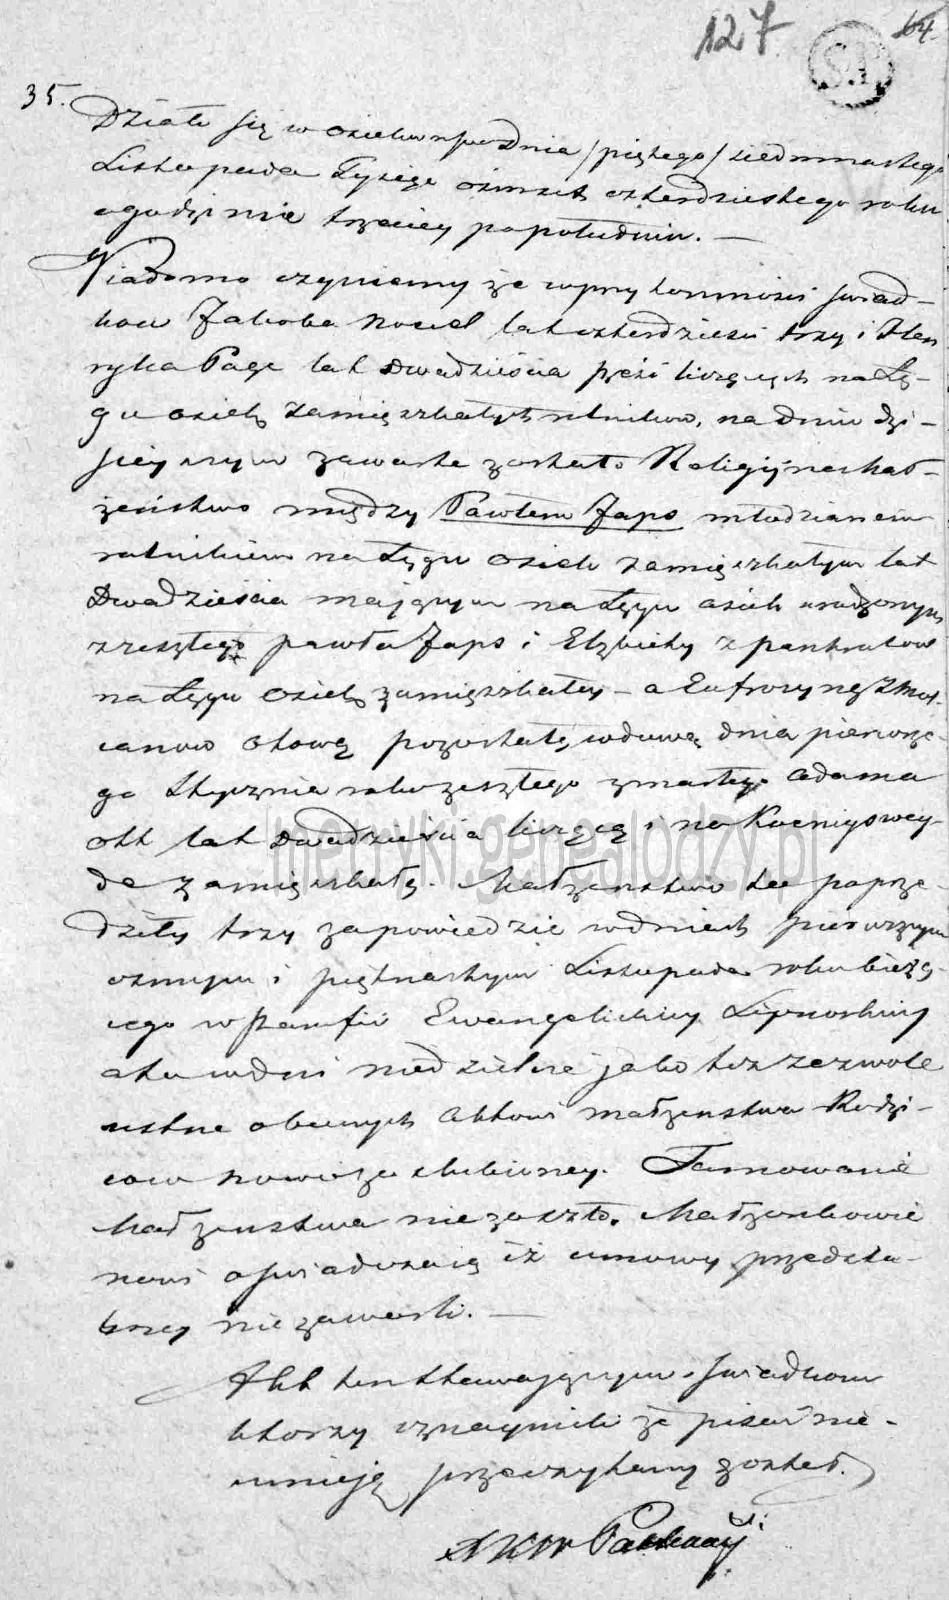 127
64.
35.
Działo się w Osieku dnia /piątego/ siedmnastego
Listopada Tysiąc ośmset czterdziestego roku
o godzinie trzeciey popołudniu. —
Wiadomo czyniemy że w przytomności świad-
kow Jakoba Nosiel lat czterdzieści trzy i Hen
ryka Page lat dwadzieścia pięć liczących na Łę-
gu osiek zamięszkałych rolnikow, na dniu dzi-
sieyszym zawarte zostało Religijne Mał-
żeństwo między Pawłem Japs młodzianem
rolnikiem na Łęgu Osiek zamięszkałym lat
Dwadzieścia mającym na Łęgu osiek urodzonym
z zeszłego pawła Japs i Elzbiety z pankratow
na Łęgu Osiek zamięszkałey – a Eufrozyną z
canow Ottową pozostałą wdową dnia pierwsze-
go Stycznia roku zeszłego zmarłego Adama
Ott lat dwadzieścia liczącą i na Koenigswey-
de zamięszkałą. Małżeństwo te poprze
dziły trzy zapowiedzie w dniach pierwszym
osmym i piętnastym Listopada roku bieżą-
cego w Parafii Ewangelickiey Lipnoskiey
 w dni niedzielne jako też zezwole
ustne obecnych Aktowi małżeństwa Rodzi-
cow nowo zaslubioney. Tamowanie
Małżeństwa nie zaszło. Małżonkowie
nowi oświadczaią iż umowy przedślu-
bney nie zawarli. —
Akt ten stawającym i świadkom
ktorzy oznaymili że pisać nie-
umieją przeczytany został.
metryki.genealodzy.pl